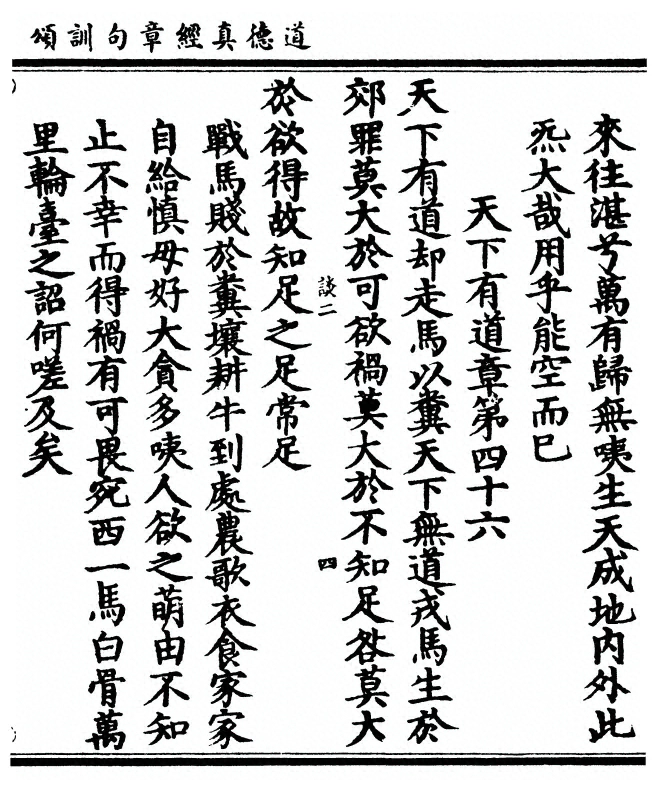 道德真經章句訓頌
來往湛兮萬有歸無咦生天成地內外此
炁大哉用乎能空而已
天下有道章第四十六
天下有道却走馬以糞天下無道戎馬生於
郊罪莫大於可欲禍莫大於不知足咎莫大
談二
四
於欲得故知足之足常足
戰馬賤於糞壤耕牛到處農歌衣食家家
自給慎毋好大貪多咦人欲之萌由不知
止不幸而得禍有可畏宛西一馬白骨萬
里輪臺之詔何嗟及矣